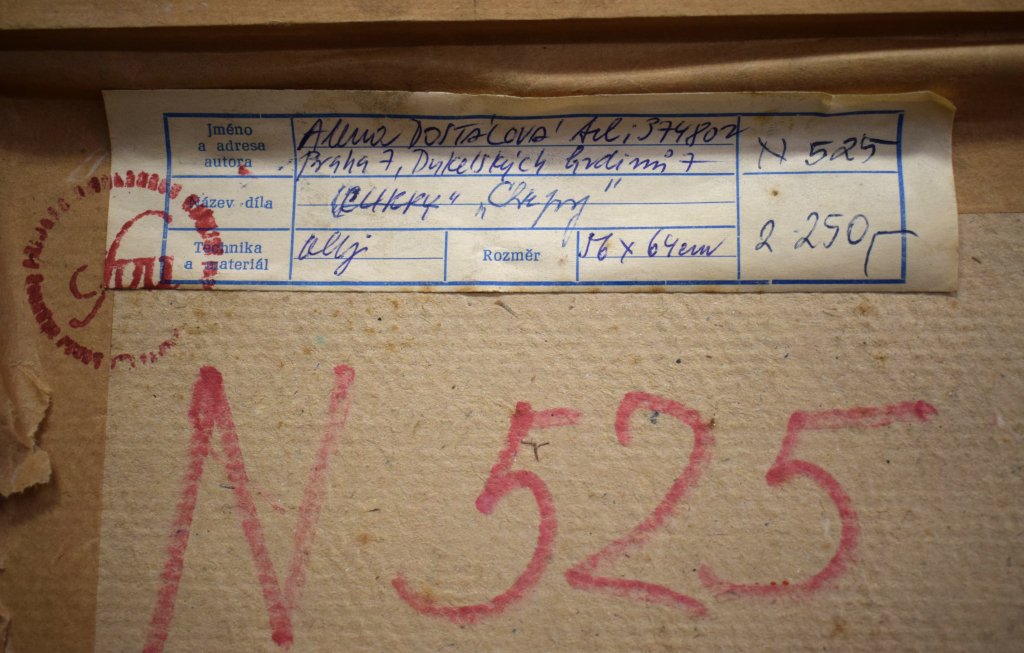 Jméno
a adresa
autora
Alena DOSTÁLOVÁ tel: 374802
Praha 7, Dukelských hrdinů 7
N 525
Název díla
"
Technika
a materiál
olej
Rozměr
56 x 64cm
2 250,-
N 525